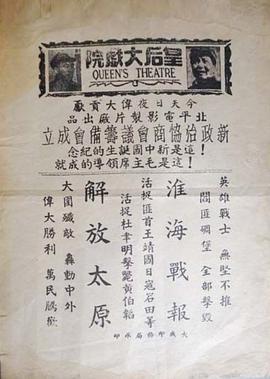 皇后大戲院
QUEEN'S THEATRE
今天日夜偉大貢獻
北平電影製片廠出品
新政治協商會議籌備會成立
！這是新中國誕生的紀念
！這是毛主席領導的成就
英雄戰士 無堅不摧
閻匪碉堡 全部擊毀
淮海戰報
活捉匪首王靖國日寇岩田等
活捉杜聿明擊斃黄伯韜
解放太原
大圍殲敵 轟動中外
偉大勝利 萬民騰歡
大成印務局承印